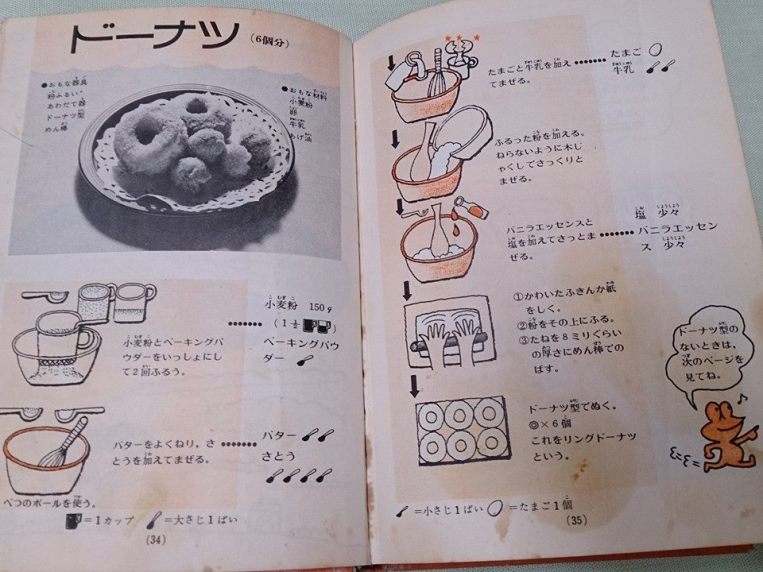 ドーナツ（6個分）
●おもな器具
粉ふるい
あわだて器
ドーナツ型
めん棒
●おもな材料
小麦粉
卵
牛乳
あげ油
小麦粉とベーキングパ
ウダーをいっしょにし
て2回ふるう。
小麦粉 150g
(1½ )
ベーキングパウ
ダー
バターをよくねり、さ
とうを加えてまぜる。
バター
さとう
べつのボールを使う。
=1カップ =大さじ1ぱい
(34)
たまごと牛乳を加え
てまぜる。
たまご
牛乳
ふるった粉を加える、
ねらないように木じ
ゃくしてさっくりと
まぜる。
バニラエッセンスと
塩を加えてさっとま
ぜる。
塩 少々
バニラエッセン
ス 少々
①かわいたふきんか紙
をしく。
②粉をその上にふる。
③たねを8ミリぐらい
の厚さにめん棒での
ばす。
ドーナツ型の
ないときは、
次のページを
見てね。
ドーナツ型でぬく。
◎×6個
これをリングドーナツ
という。
=小さじ1ぱい =たまご1個
(35)